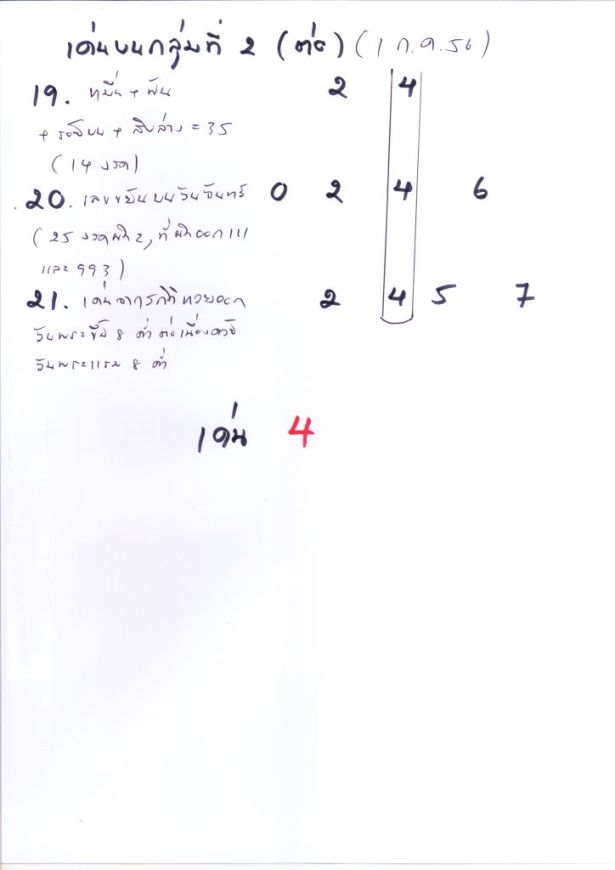 เด่นบนกลุ่มที่ 2 (ต่อ) (1 ก.ค.56)
19. หมื่น + พัน 2 4
+ ร้อยบน + สิบล่าง = 35
(14 งวด)
20. เลขขยันบนวันจันทร์ 0 2 4 6
(25 งวดผิด 2, ที่ผิดออก 111
และ 993)
21. เด่นจากสถิติหวยออก 2 4 5 7
วันพระขึ้น 8 ค่ำ ต่อเนื่อง
วันพระแรม 8 ค่ำ
เด่น 4